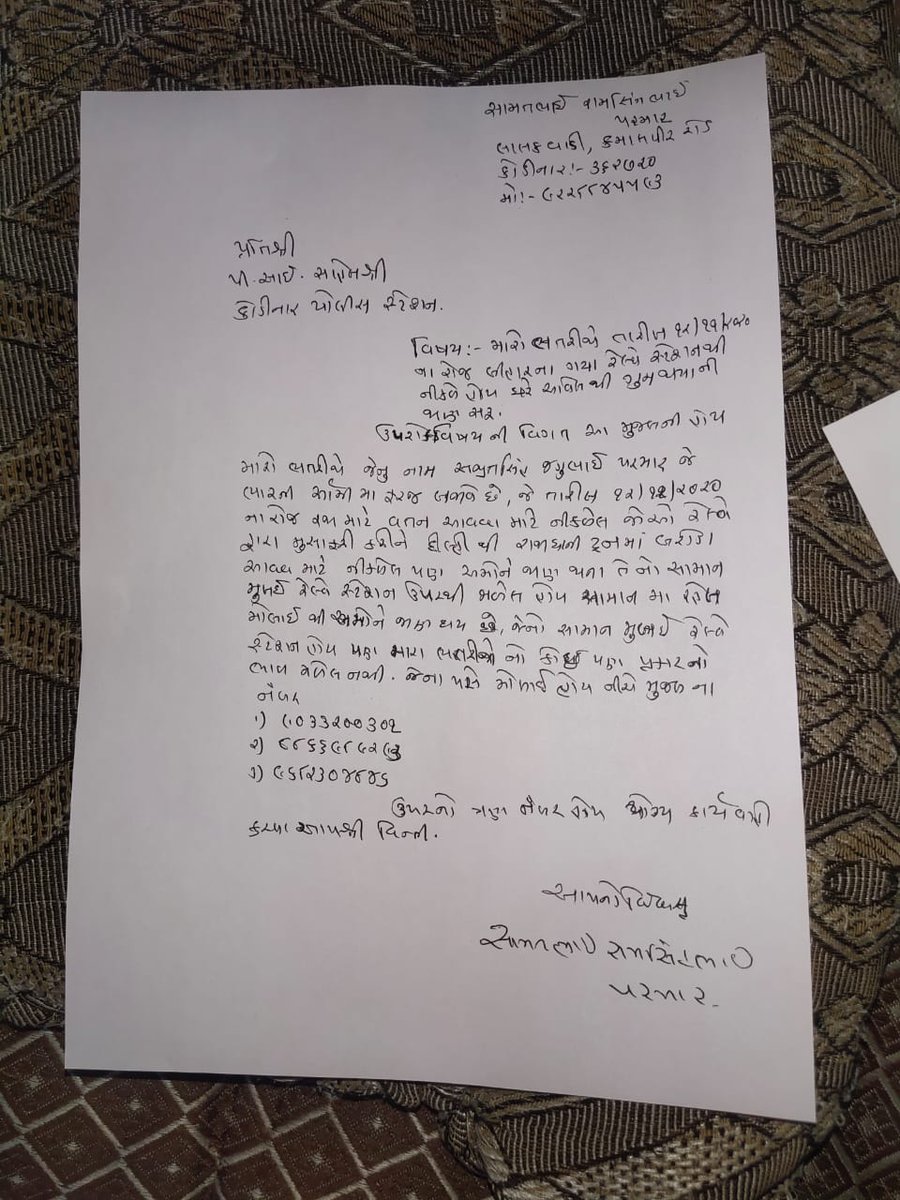 સામતભાઈ રામસિંગભાઈ
પરમાર
લાલકવાડી, કમાલપીર રોડ
કોડીનાર:- ૩૬૨૭૨૦
મો:-
પ્રતિશ્રી
પી.આઈ. સાહેબશ્રી
કોડીનાર પોલીસ સ્ટેશન.
વિષય:- મારો ભત્રીજો તારીખ
ના રોજ બીહારના ગયા રેલ્વે સ્ટેશનથી
નીકળેલ હોય ઘરે આવેલ થી ગુમ થયાની
જાણ સર.
ઉપરોક્ત વિષય ની વિગત આ મુજબની હોય
મારો ભત્રીજો જેનુ નામ જગુભાઈ પરમાર જે
ભારતી આર્મી મા ફરજ બજાવે છે, જે તારીખ ૧૨/૧૨/૨૦૨૦
ના રોજ રજા માટે વતન આવવા માટે નીકળેલ જેઓ રેલ્વે
દ્વારા મુસાફરી કરીને દીલ્હી થી રાજધાની ટ્રેનમાં બરોડા
આવવા માટે નીકળેલ પણ અમોને જાણ થતા તેનો સામાન
મુંબઈ રેલ્વે સ્ટેશન ઉપરથી મળેલ હોય સામાન મા રહેલ
મોબાઈલ થી અમોને જાણ થયુ છે, જેનો સામાન મુંબઈ રેલ્વે
સ્ટેશન હોય પણ મારા ભત્રીજા નો કોઈ પણ પ્રકારનો
ભાળ મળેલ નથી. જેના પાસે મોબાઈલ હોય નીચે મુજબ ના
નંબર
૧) ૯૦૩૩૨૦૦૩૦૨
૨)
૩)
ઉપરનો ત્રણ નંબર હોય યોગ્ય કાર્યવાહી
કરવા આપશ્રી વિનંતી.
આપનો વિશ્વાસુ
સામતભાઈ રામસિંહભાઈ
પરમાર.